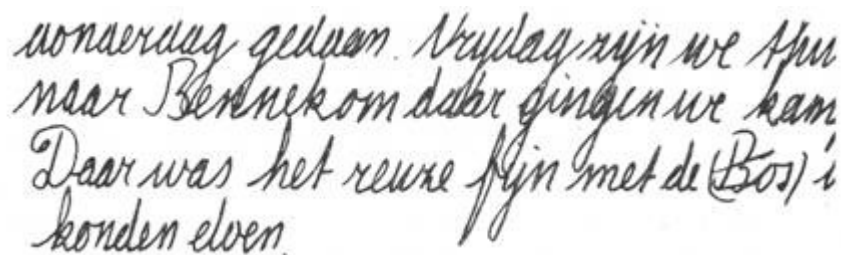 donderdag gedaan. Vrydag zijn we
naar Bennekom daar gingen we kam
Daar was het reuze fijn met de (Bos) i
konden elven.